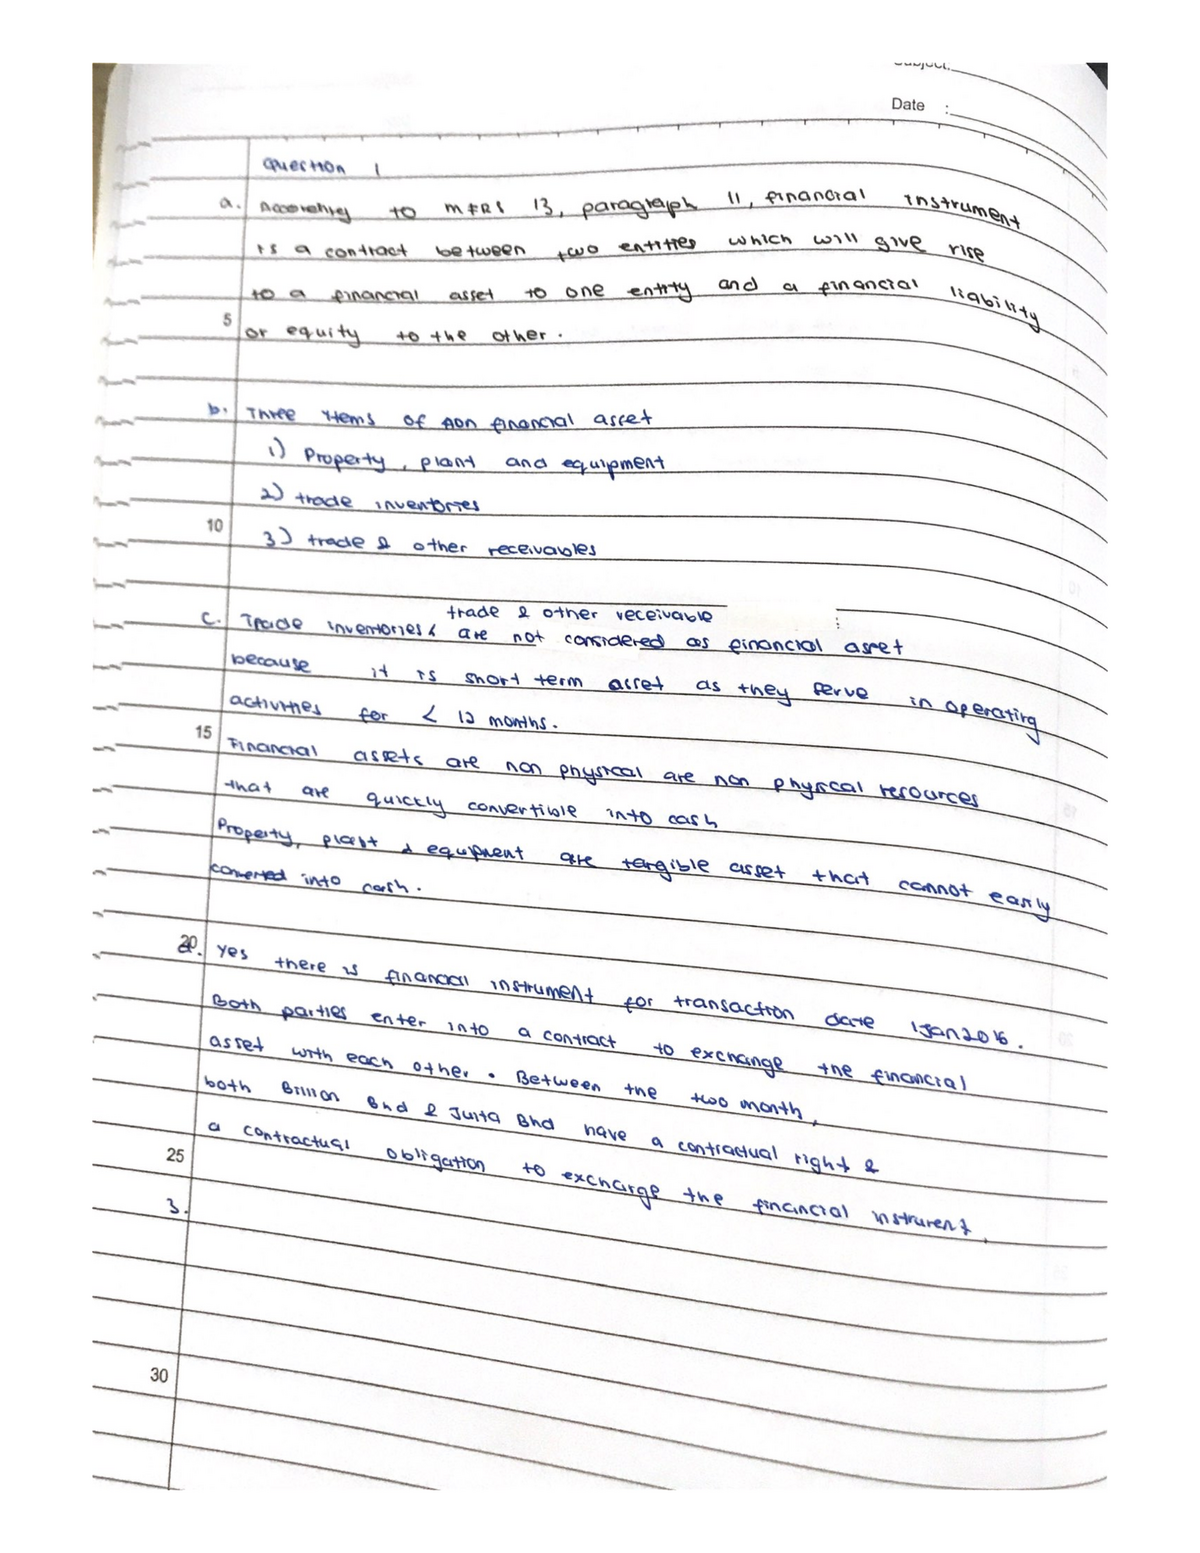 Date :
Question 1
a. According to MFRS 13, paragraph 11, financial instrument
is a contract between two entities which will give rise
to a financial asset to one entity and a financial liability
5
or equity to the other.
b. Three items of non financial asset
1) Property, plant and equipment
2) trade inventories
10
3) trade & other receivables
trade & other receivable
c. Trade inventories & are not considered as financial asset
because it is short term asset as they serve in operating
activities for < 12 months.
15
Financial assets are non physical are non physical resources
that are quickly convertible into cash
Property, plant & equipment are tangible asset that cannot easily
converted into cash.
20
2. Yes there is financial instrument for transaction date 1 Jan 2016.
Both parties enter into a contract to exchange the financial
asset with each other. Between the two month,
both Billion Bhd & Juita Bhd have a contractual right &
a contractual obligation to exchange the financial instrument.
25
3.
30